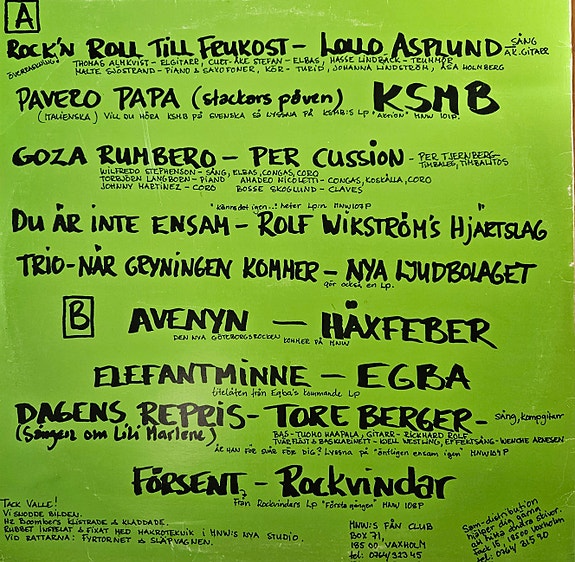 A
ROCK'N ROLL TILL FRUKOST - LOLLO ASPLUND - SÅNG AK.GITARR
ÖVERRASKNING! THOMAS ALMKVIST - ELGITARR, CURT-ÅKE STEFAN - ELBAS, HASSE LINDBÄCK - TRUMMOR
MALTE SJÖSTRAND - PIANO & SAXOFONER, KÖR - JOHANNA LINDSTRÖM, ÅSA HOLMBERG
PAVERO PAPA (stackars påven) KSMB
(ITALIENSKA) VILL DU HÖRA KSMB PÅ SVENSKA SÅ LYSSNA PÅ KSMB:S LP "Aktion" MNW 101P.
GOZA RUMBERO - PER CUSSION - PER TJERNBERG-
TIMBALES, TIMBALITOS
WILFREDO STEPHENSON - SÅNG, ELBAS, CONGAS, CORO
TORBJÖRN LANGBORN - PIANO AMADEO NICOLETTI - CONGAS, KOSKÄLLA, CORO
JOHNNY MARTINEZ - CORO BOSSE SKOGLUND - CLAVES
"Känns det igen..! heter Lp:n MNW107P
DU ÄR INTE ENSAM - ROLF WIKSTRÖM'S HJÄRTSLAG
TRIO - NÄR GRYNINGEN KOMMER - NYA LJUDBOLAGET
gör också en Lp.
B
AVENYN - HÄXFEBER
DEN NYA GÖTEBORGSROCKEN KOMMER PÅ MNW
ELEFANTMINNE - EGBA
titellåten från Egba's kommande Lp
DAGENS REPRIS - TORE BERGER - sång, kompgitarr
(Sången om Lili Marlene)
BAS - TUOMO HAAPALA, GITARR - RICKHARD ROLF
TVÄRFLÖJT & BASKLARINETT - KJELL WESTLING, EFFEKTSÅNG - WENCHE ARNESEN
ÄR HAN FÖR SVÅR FÖR DIG? Lyssna på "äntligen ensam igen" MNW109P
FÖRSENT - Rockvindar
Från Rockvinders Lp "Första gången" MNW 108P
TACK VALLE!
VI SNODDE BILDEN.
HZ BOOMBERS KLISTRADE & KLADDADE.
RUBBET INSPELAT & FIXAT MED MAKROTEKNIK I MNW:S NYA STUDIO.
VID RATTARNA: FYRTORNET & SLÄPVAGNEN.
MNW:S FÅN CLUB
BOX 71,
185 00 VAXHOLM
tel: 0764/323 45
Sam-distribution
hjälper dig gärna
att hitta andra skivor.
Fack 15, 18500 Vaxholm
tel: 0764/315 90